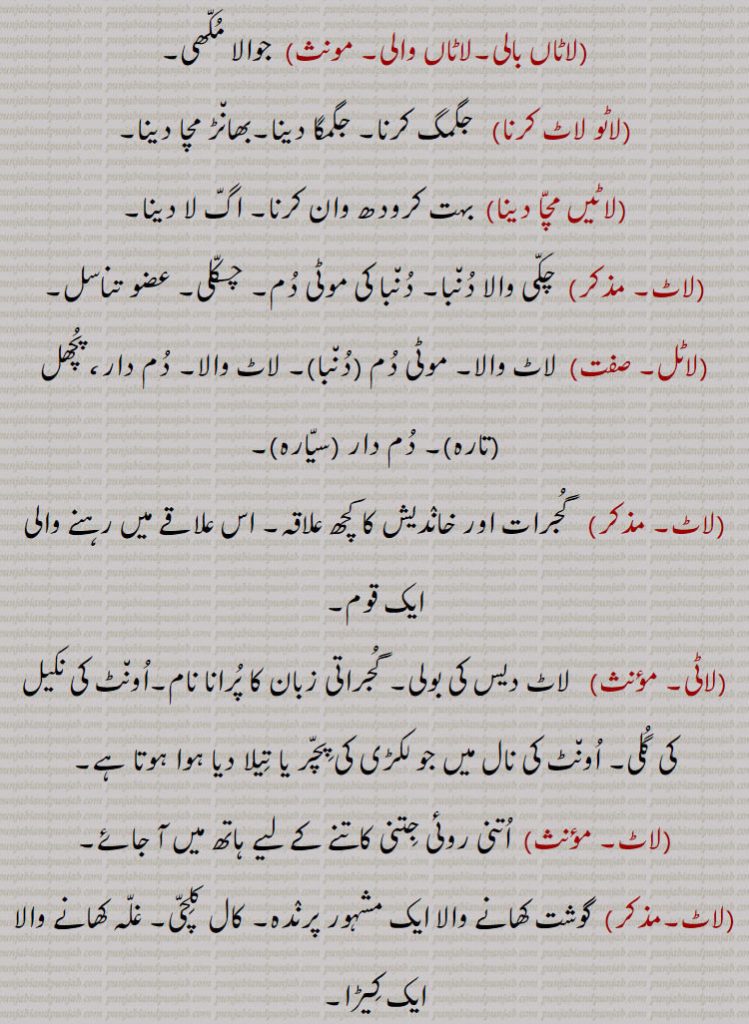 (لاٹاں بالی۔لاٹاں والی۔ مونث) جوالا مُکّھی۔
(لاٹو لاٹ کرنا) جگمگ کرنا۔ جگمگا دینا۔بھانّبڑ مچا دینا۔
(لاٹیں مچّا دینا) بہت کرودھ وان کرنا۔ اگّ لا دینا۔
(لاٹ۔ مذکر) چکّی والا دُنّبا۔ دُنّبا کی موٹی دُم۔ چسکّلی۔ عضو تناسل۔
(لاٹل۔ صفت) لاٹ والا۔ موٹی دُم (دُنّبا)۔ لاٹ والا۔ دُم دار، پُچھل
(تارہ)۔ دُم دار (سیّارہ)۔
(لاٹ۔ مذکر) گُجرات اور خانْدیش کا کچھ علاقہ۔ اس علاقے میں رہنے والی
ایک قوم۔
(لاٹی۔ مؤنث) لاٹ دیس کی بولی۔ گُجراتی زبان کا پُرانا نام۔اُونّٹ کی نکیل
کی گُلی۔ اُونّٹ کی نال میں جو لکڑی کی پچّر یا تِیلا دیا ہوا ہوتا ہے۔
(لاٹ۔ مؤنث) اُتنی روئی جِتنی کاتنے کے لیے ہاتھ میں آ جائے۔
(لاٹ۔مذکر) گوشت کھانے والا ایک مشہور پرنْدہ۔ کال کلِچّی۔ غلّہ کھانے والا
ایک کِیڑا۔